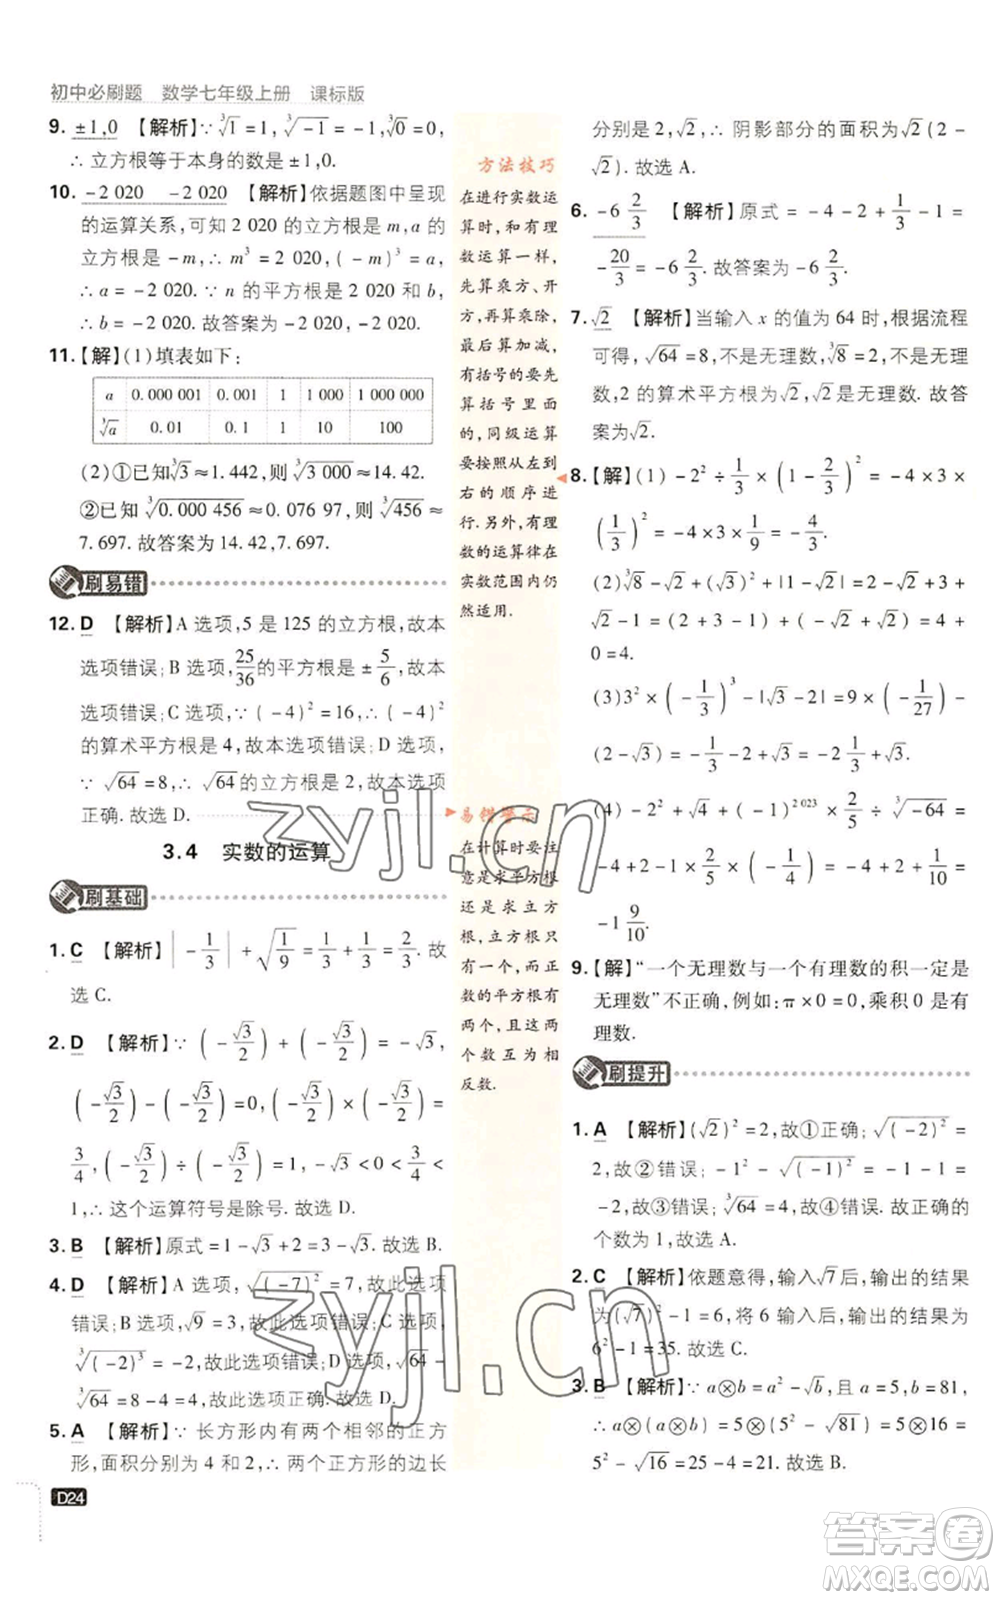 初中必刷题　数学七年级上册　课标版
9. ±1,0　【解析】∵ ∛1 = 1, ∛-1 = -1, ∛0 = 0,
∴ 立方根等于本身的数是 ±1,0.
10. -2 020　-2 020　【解析】依据题图中呈现
的运算关系,可知 2 020 的立方根是 m,a 的
立方根是 -m,∴ m³ = 2 020,(-m)³ = a,
∴ a = -2 020. ∵ n 的平方根是 2 020 和 b,
∴ b = -2 020. 故答案为 -2 020, -2 020.
11.【解】(1)填表如下:
a　0.000 001　0.001　1　1 000　1 000 000
∛a　0.01　0.1　1　10　100
(2)①已知∛3 ≈ 1.442,则∛3 000 ≈ 14.42.
②已知∛0.000 456 ≈ 0.076 97,则∛456 ≈
7.697. 故答案为 14.42,7.697.
刷易错
12. D　【解析】A 选项,5 是 125 的立方根,故本
选项错误;B 选项,25/36 的平方根是 ± 5/6,故本
选项错误;C 选项,∵ (-4)² = 16,∴ (-4)²
的算术平方根是 4,故本选项错误;D 选项,
∵ √64 = 8,∴ √64 的立方根是 2,故本选项
正确. 故选 D.
3.4　实数的运算
刷基础
1. C　【解析】|-1/3| + √(1/9) = 1/3 + 1/3 = 2/3. 故
选 C.
2. D　【解析】∵ (-√3/2) + (-√3/2) = -√3,
(-√3/2) - (-√3/2) = 0, (-√3/2) × (-√3/2) =
3/4, (-√3/2) ÷ (-√3/2) = 1, -√3 < 0 < 3/4 <
1,∴ 这个运算符号是除号. 故选 D.
3. B　【解析】原式 = 1 - √3 + 2 = 3 - √3. 故选 B.
4. D　【解析】A 选项, √(-7)² = 7,故此选项
错误;B 选项, √9 = 3,故此选项错误;C 选项,
∛(-2)³ = -2,故此选项错误;D 选项, √64 -
∛64 = 8 - 4 = 4,故此选项正确. 故选 D.
5. A　【解析】∵ 长方形内有两个相邻的正方
形,面积分别为 4 和 2,∴ 两个正方形的边长
D24
方法技巧
在进行实数运
算时,和有理
数运算一样,
先算乘方、开
方,再算乘除,
最后算加减,
有括号的要先
算括号里面
的,同级运算
要按照从左到
右的顺序进
行. 另外,有理
数的运算律在
实数范围内仍
然适用.
易错警示
在计算时要注
意是求平方根
还是求立方
根,立方根只
有一个,而正
数的平方根有
两个,且这两
个数互为相
反数.
分别是 2,√2,∴ 阴影部分的面积为 √2(2 -
√2). 故选 A.
6. -6 2/3　【解析】原式 = -4 - 2 + 1/3 - 1 =
-20/3 = -6 2/3. 故答案为 -6 2/3.
7. √2　【解析】当输入 x 的值为 64 时,根据流程
可得, √64 = 8,不是无理数, ∛8 = 2,不是无理
数,2 的算术平方根为√2,√2是无理数. 故答
案为√2.
8.【解】(1) -2² ÷ 1/3 × (1 - 2/3)² = -4 × 3 ×
(1/3)² = -4 × 3 × 1/9 = -4/3.
(2)∛8 - √2 - (-√2) + |1 - √2| = 2 - √2 +
√2 + √2 - 1 = (2 + 3 - 1) + (-√2 - √2 + √2 + √2) = 4 +
0 = 4.
(3)3² × (-1/3)³ - |√3 - 2| = 9 × (-1/27) -
(2 - √3) = -1/3 - 2 + √3 = -2 1/3 + √3.
(4) -2² + √4 × (-1)^2 023 × 2/5 ÷ ∛-64 =
-1 9/10.
9.【解】“一个无理数与一个有理数的积一定是
无理数”不正确,例如:π × 0 = 0,乘积 0 是有
理数.
刷提升
1. A　【解析】(√2)² = 2,故①正确; √(-2)² =
2,故②错误; -1² - √(-1)² = -1 - 1 =
-2,故③错误; ∛64 = 4,故④错误. 故正确的
个数为 1. 故选 A.
2. C　【解析】依题意得,输入√7后,输出的结果
为(√7)² - 1 = 6,将 6 输入后,输出的结果为
6² - 1 = 35. 故选 C.
3. B　【解析】∵ a⊗b = a² - √b,且 a = 5,b = 81,
∴ a⊗(a⊗b) = 5⊗(5² - √81) = 5⊗16 =
5² - √16 = 25 - 4 = 21. 故选 B.
zyjl.cn
zyjl.cn
答案圈
MXQE.COM